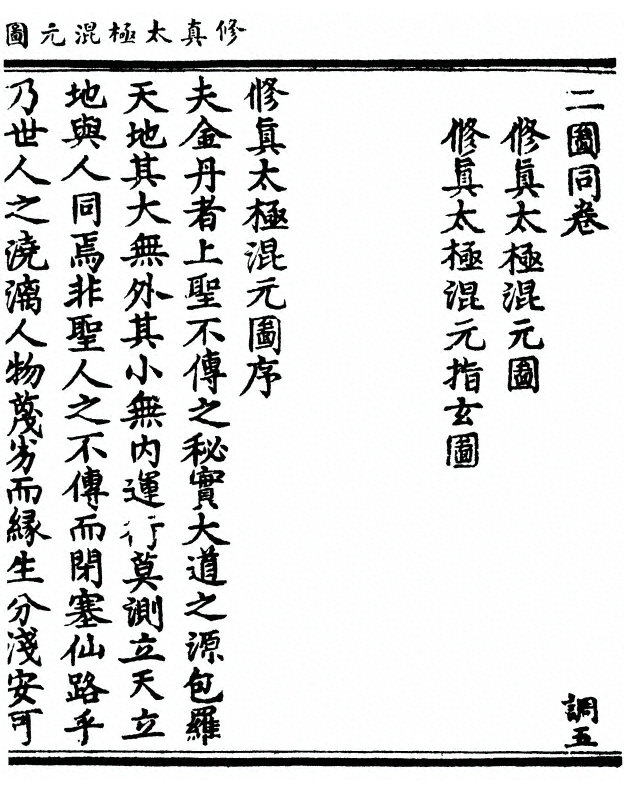 修真太極混元圖
二圖同卷
調五
修眞太極混元圖
修眞太極混元指玄圖
修眞太極混元圖序
夫金丹者上聖不傳之秘實大道之源包羅
天地其大無外其小無内運行莫測立天立
地與人同焉非聖人之不傳而閉塞仙路乎
乃世人之澆漓人物蔑劣而縁生分淺安可